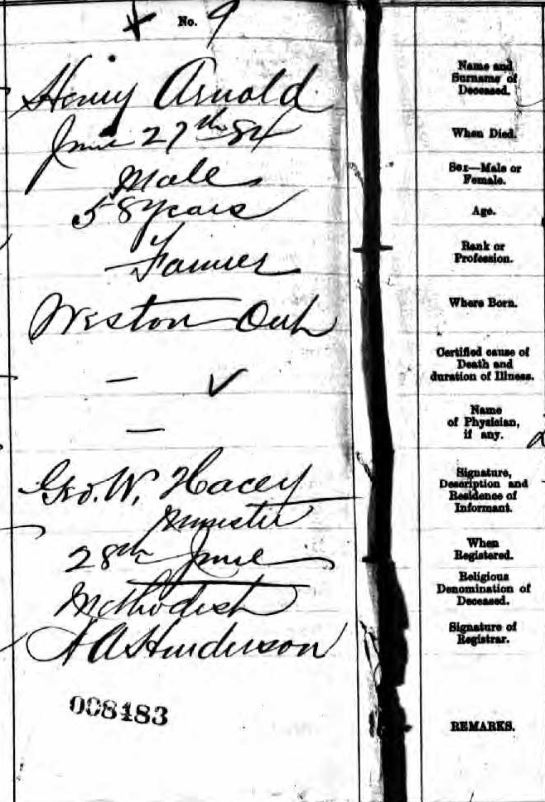 No. 9
Henry Arnold
June 27th 84
Male
58 years
Farmer
Weston Ont
—
—
Geo. W. Hacey
Minister
28th June
Methodist
A Henderson
008483
Name and
Surname of
Deceased.
When Died.
Sex—Male or
Female.
Age.
Rank or
Profession.
Where Born.
Certified cause of
Death and
duration of Illness.
Name
of Physician,
if any.
Signature,
Description and
Residence of
Informant.
When
Registered.
Religious
Denomination of
Deceased.
Signature of
Registrar.
REMARKS.